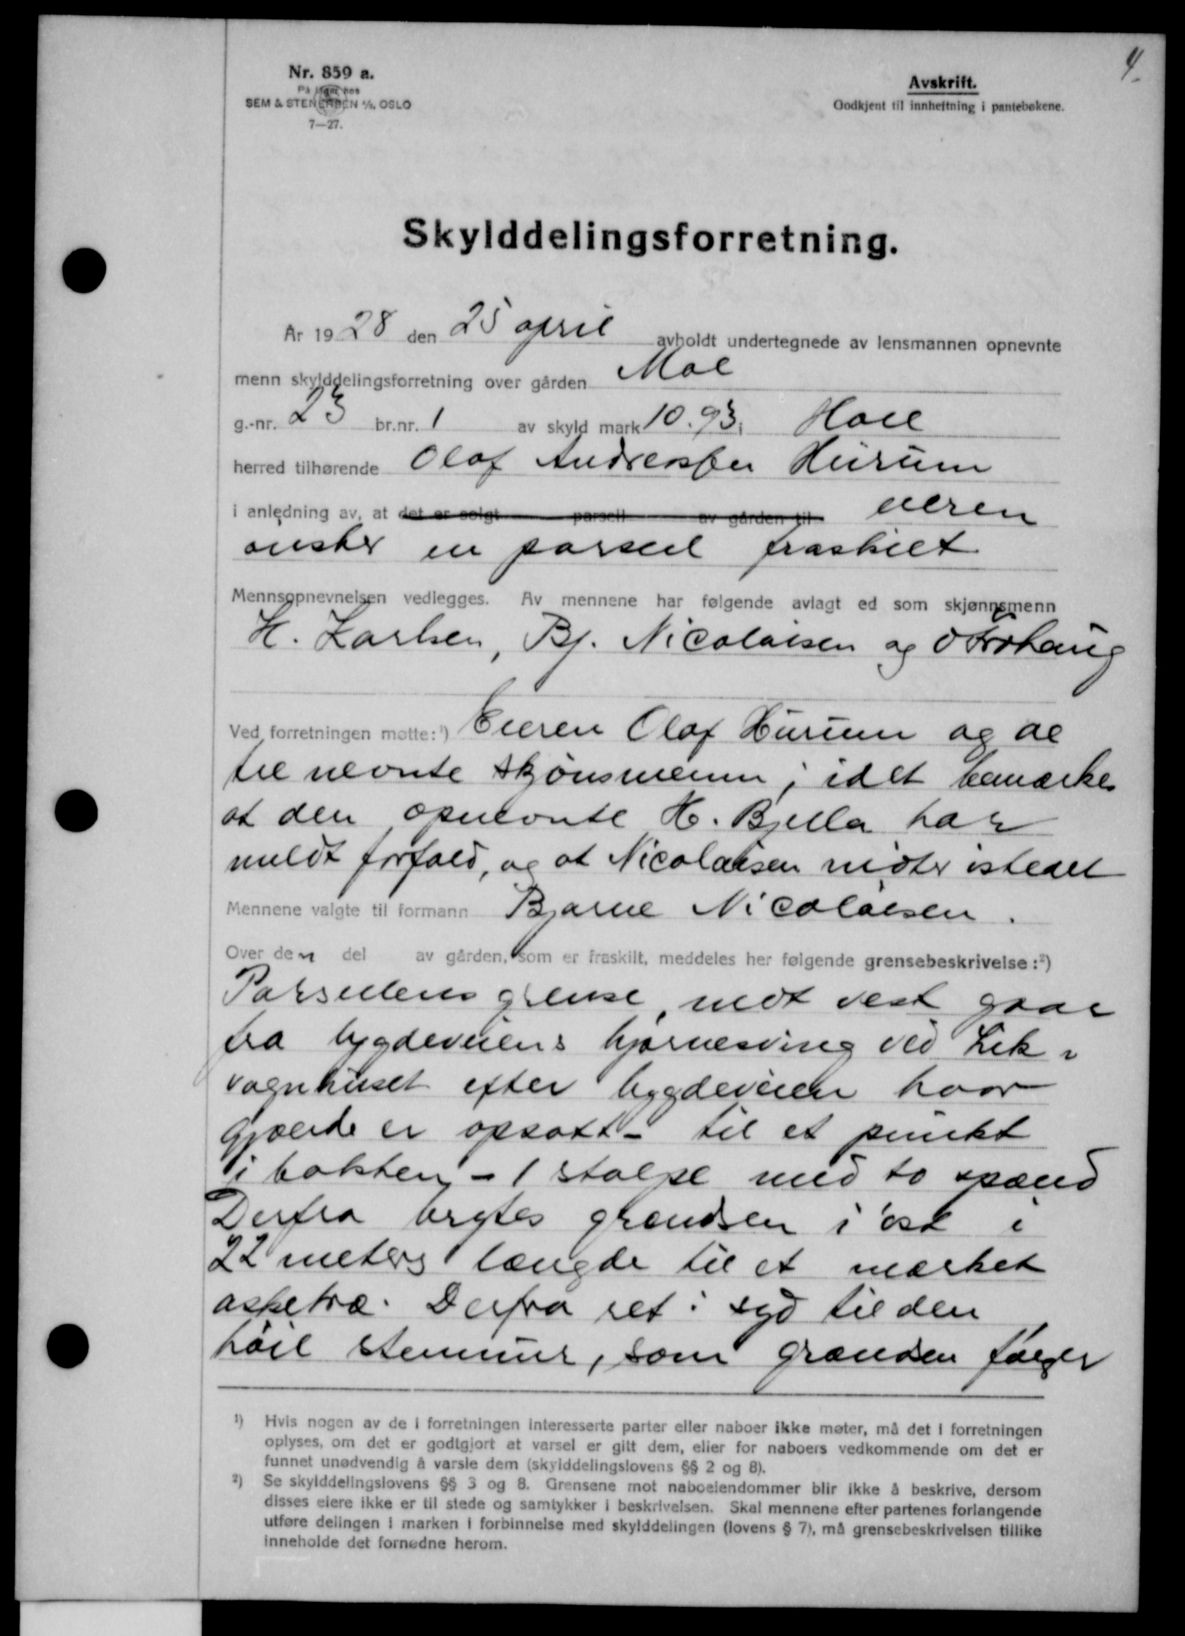 4.
Nr. 859 a.
På lager hos
SEM & STENERSEN A/S, OSLO
7—27.
Avskrift.
Godkjent til innheftning i pantebøkene.
Skylddelingsforretning.
År 1928 den 25 april avholdt undertegnede av lensmannen opnevnte
menn skylddelingsforretning over gården Moe
g.-nr. 23 br.nr. 1 av skyld mark 10.93 i Hole
herred tilhørende Olaf Andreassen Hurum
i anledning av, at det er solgt parsell av gården til eieren
ønsker en parsell fraskilt
Mennsopnevnelsen vedlegges. Av mennene har følgende avlagt ed som skjønnsmenn
H. Karlsen, Bj. Nicolaisen og O Frøhaug
Ved forretningen møtte:¹) Eieren Olaf Hurum og de
tre nevnte skjønsmenn; idet bemærkes
at den opnevnte H. Bjella har
meldt forfald, og at Nicolaisen møter istedet
Mennene valgte til formann Bjarne Nicolaisen.
Over den del av gården, som er fraskilt, meddeles her følgende grensebeskrivelse:²)
Parsellens grense mot vest gaar
fra bygdeveiens hjørnesving ved Lik-
vognhuset efter bygdeveien hvor
gjærde er opsatt - til et punkt
i bakken - 1 stolpe med to spænd
Derfra brytes grændsen i øst i
22 meters længde til et mærket
asketræ. Derfra ret i syd til den
høie stenmur, som grændsen følger
¹) Hvis nogen av de i forretningen interesserte parter eller naboer ikke møter, må det i forretningen
oplyses, om det er godtgjort at varsel er gitt dem, eller for naboers vedkommende om det er
funnet unødvendig å varsle dem (skylddelingslovens §§ 2 og 8).
²) Se skylddelingslovens §§ 3 og 8. Grensene mot naboeiendommer blir ikke å beskrive, dersom
disses eiere ikke er til stede og samtykker i beskrivelsen. Skal mennene efter partenes forlangende
utføre delingen i marken i forbinnelse med skylddelingen (lovens § 7), må grensebeskrivelsen tillike
inneholde det fornødne herom.